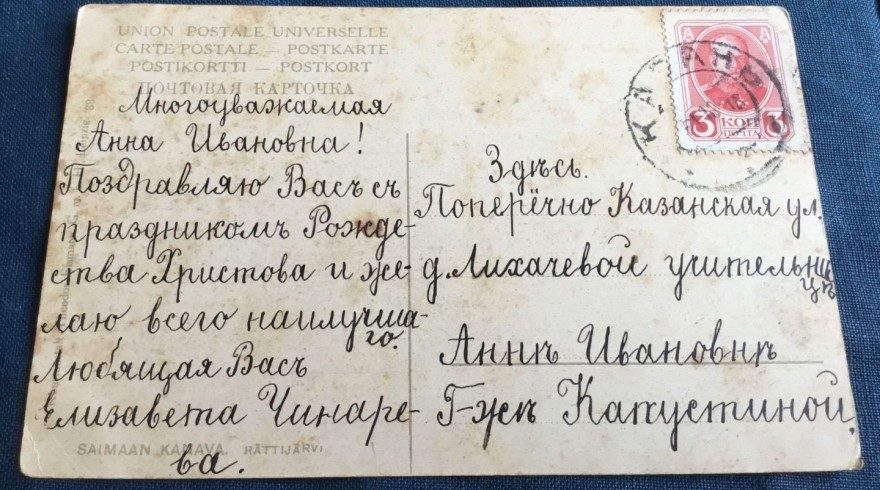 UNION POSTALE UNIVERSELLE
CARTE POSTALE — POSTKARTE
POSTIKORTTI — POSTKORT
ПОЧТОВАЯ КАРТОЧКА
Многоуважаемая
Анна Ивановна!
Поздравляю Васъ съ
праздникомъ Рожде-
ства Христова и же-
лаю всего наилучша-
го.
Любящая Васъ
Елизавета Чинаре-
ва.
SAIMAAN KANAVA. RÄTTIJÄRVI
КАЗАНЬ
3 КОП 3
ПОЧТА
Здѣсь.
Поперёчно Казанская ул.
д. Лихачевой учительни-
цѣ
Аннѣ Ивановнѣ
Г-жѣ Капустиной.